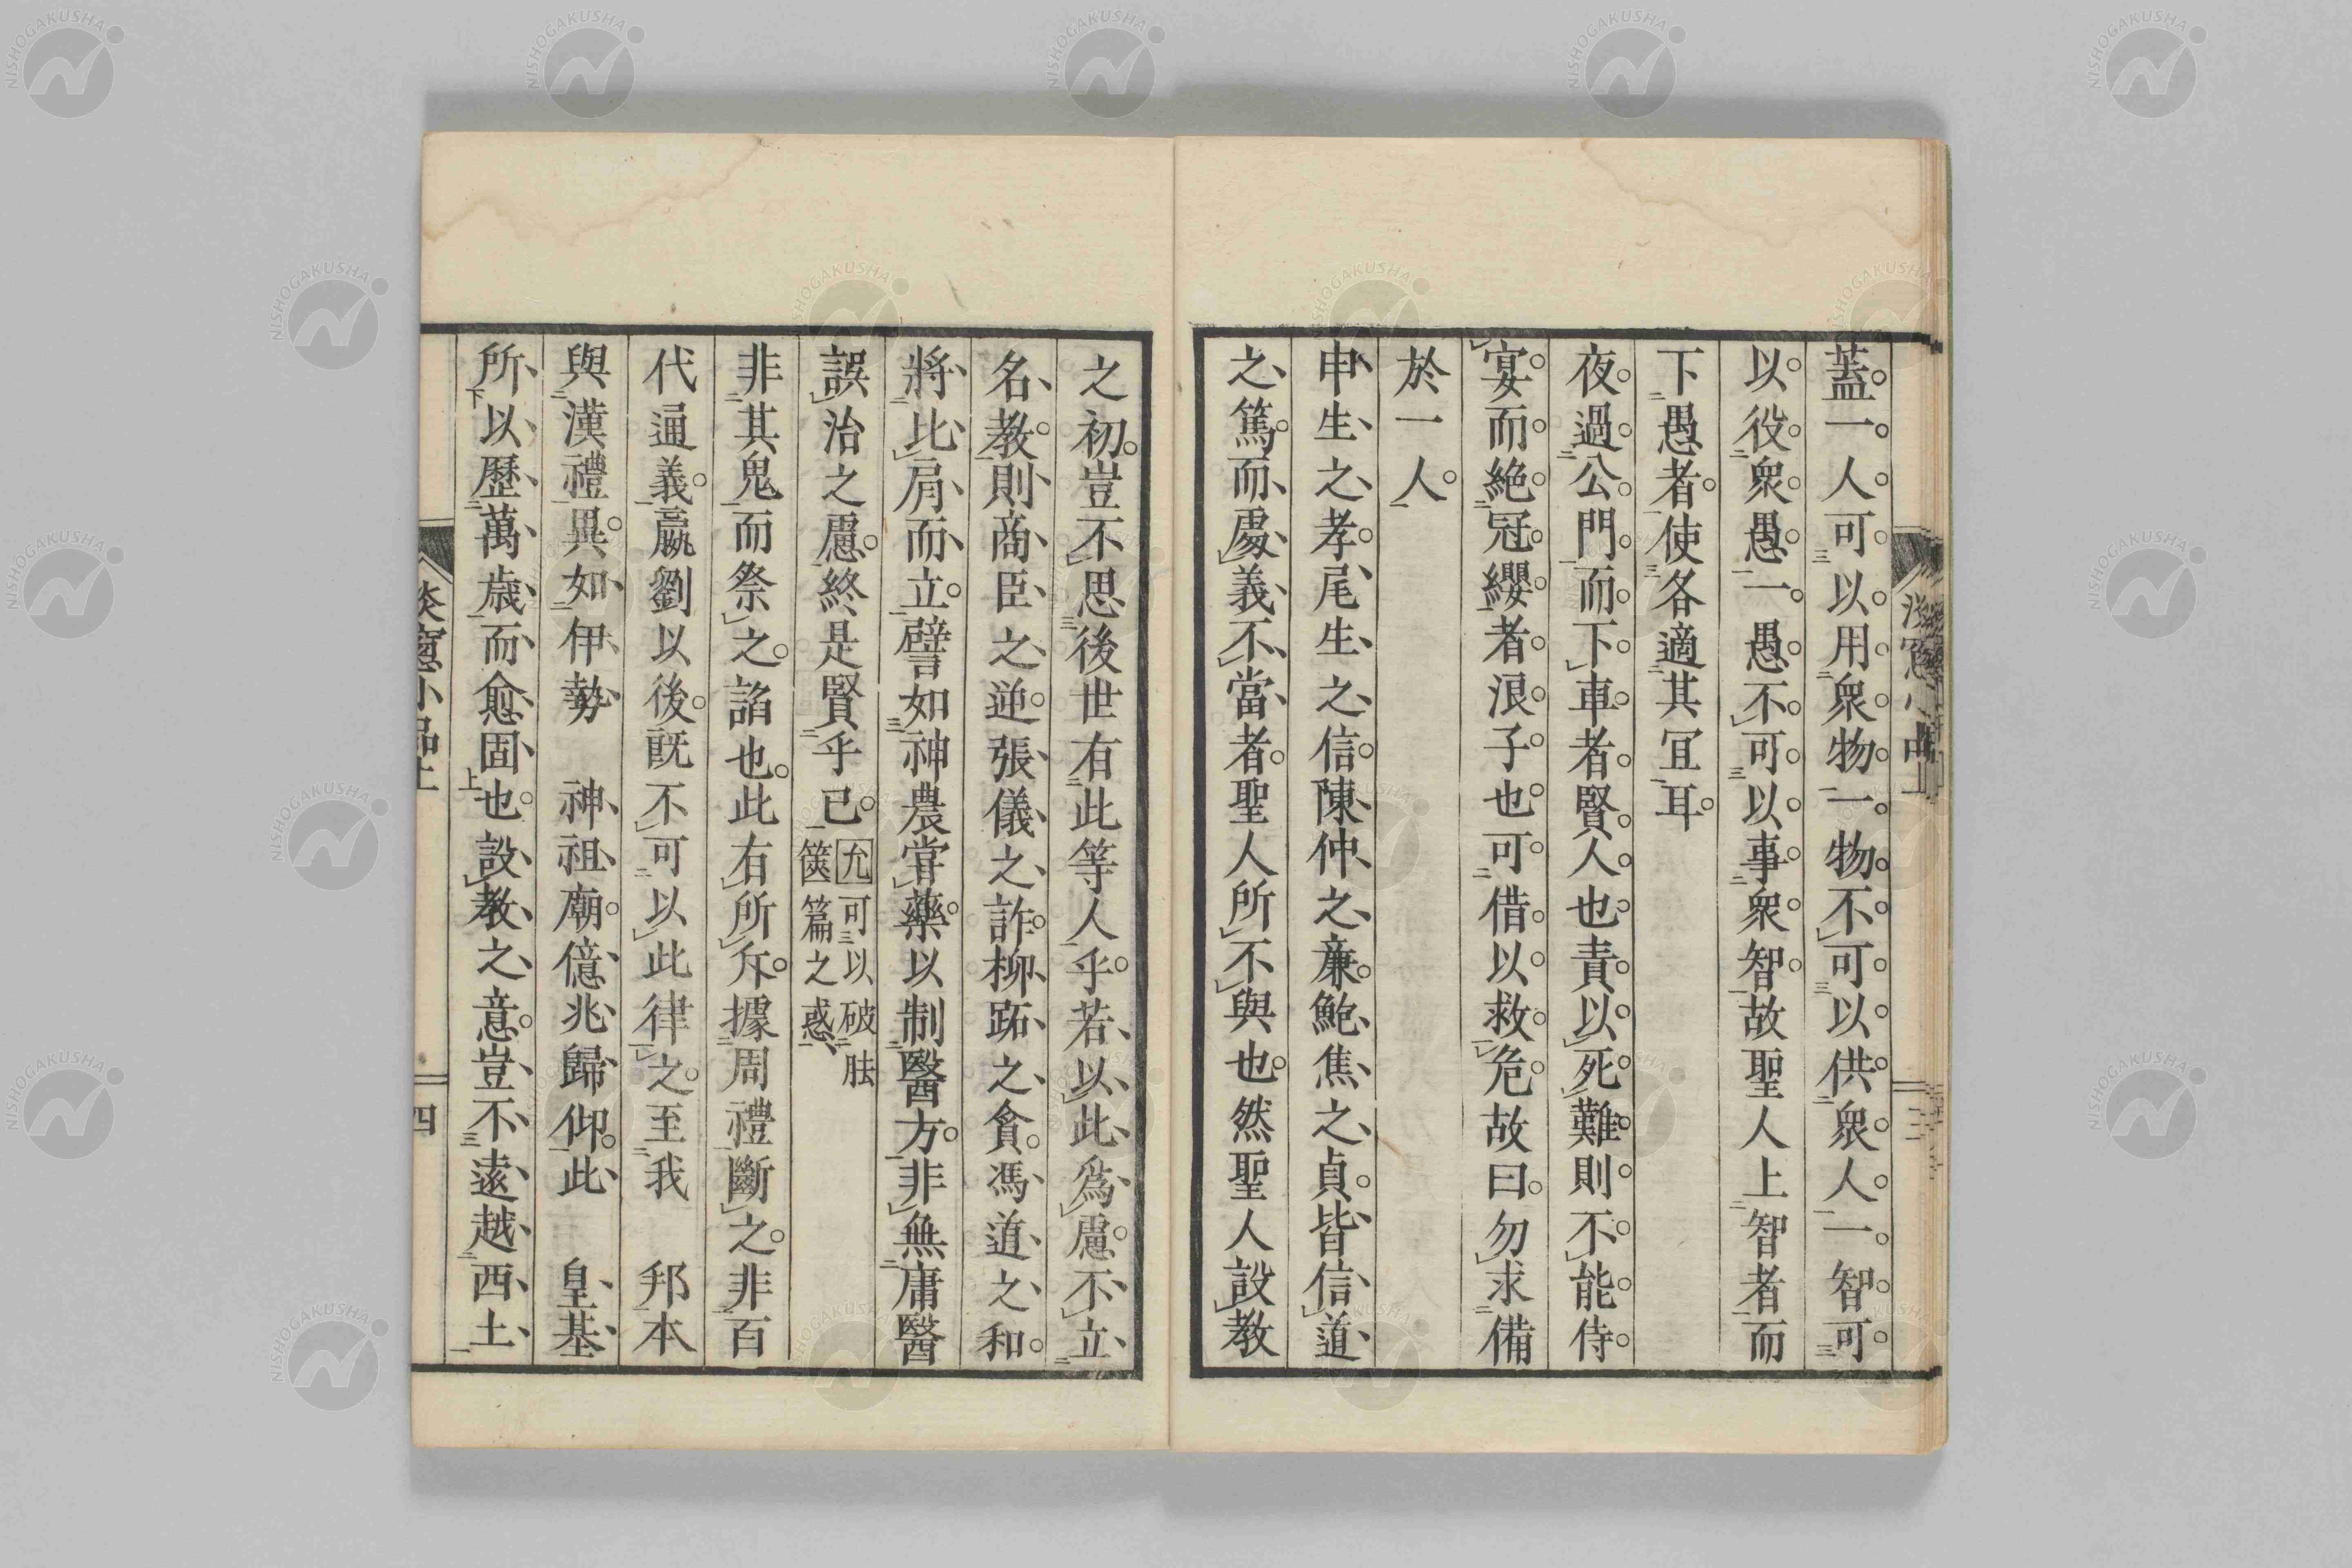 蓋一人可以用衆物一物不可以供衆人一智可
以役衆愚一愚不可以事衆智故聖人上智者而
下愚者使各適其宜耳
夜過公門而下車者賢人也責以死難則不能侍
宴而絶冠纓者浪子也可借以救危故曰勿求備
於一人
申生之孝尾生之信陳仲之廉鮑焦之貞皆信道
之篤而處義不當者聖人所不與也然聖人設教
之初豈不思後世有此等人乎若以此爲慮不立
名教則商臣之逆張儀之詐柳跖之貪馮道之和
將比肩而立譬如神農嘗藥以制醫方非無庸醫
誤治之慮終是賢乎已 允可以破胠
篋篇之惑
非其鬼而祭之諂也此右所斥據周禮斷之非百
代通義嬴劉以後既不可以此律之至我 邦本
與漢禮異如伊勢 神祖廟億兆歸仰此 皇基
所以歷萬歳而愈固也設教之意豈不遠越西土
談窻小品上
四
NISHOGAKUSHA